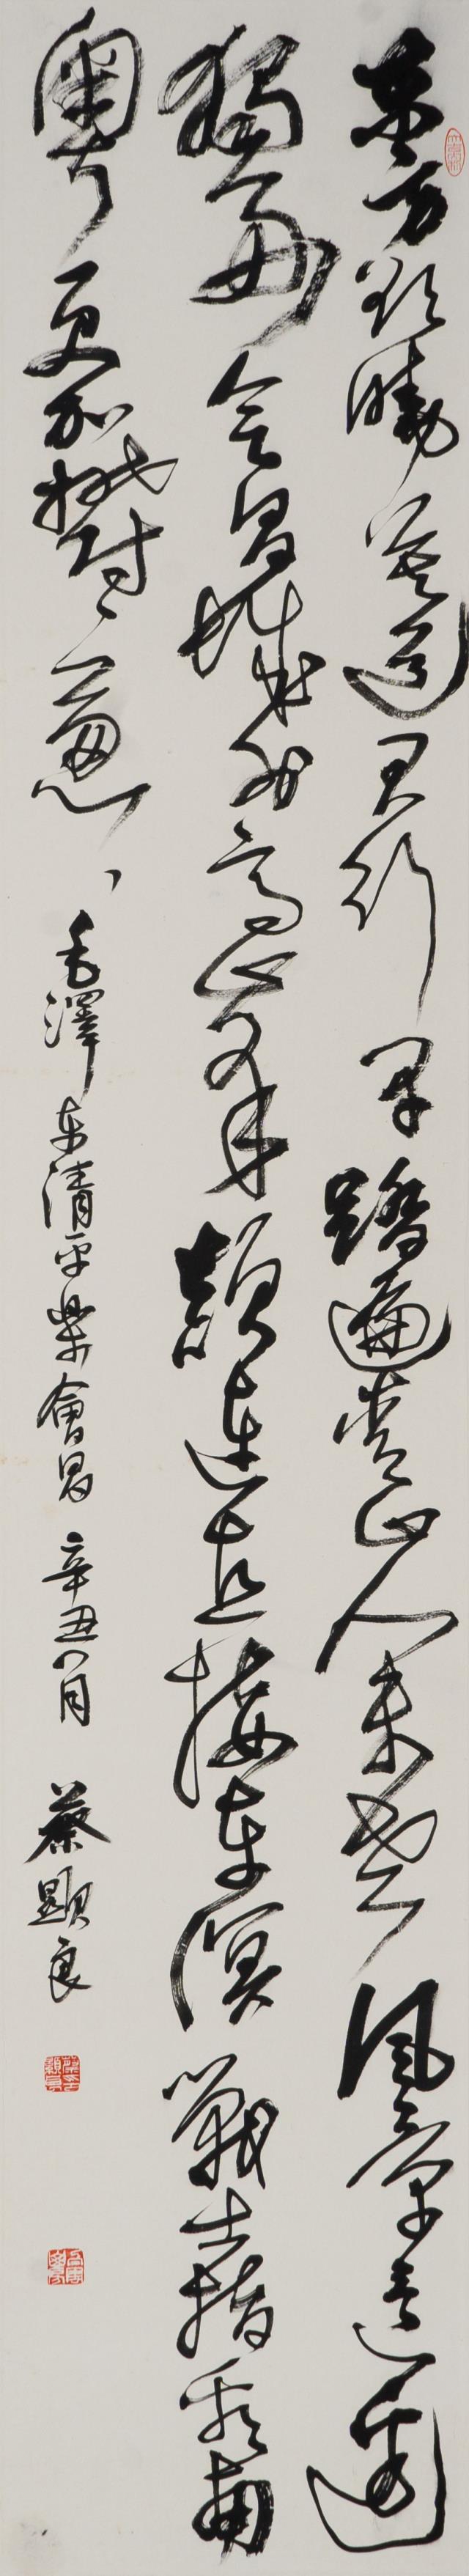 東方欲曉莫道君行早踏遍青山人未老風景這邊
獨好會昌城外高峰顛連直接東溟戰士指看南
粵更加鬱々蔥々毛澤東清平樂會昌 辛丑八月 蔡顯良